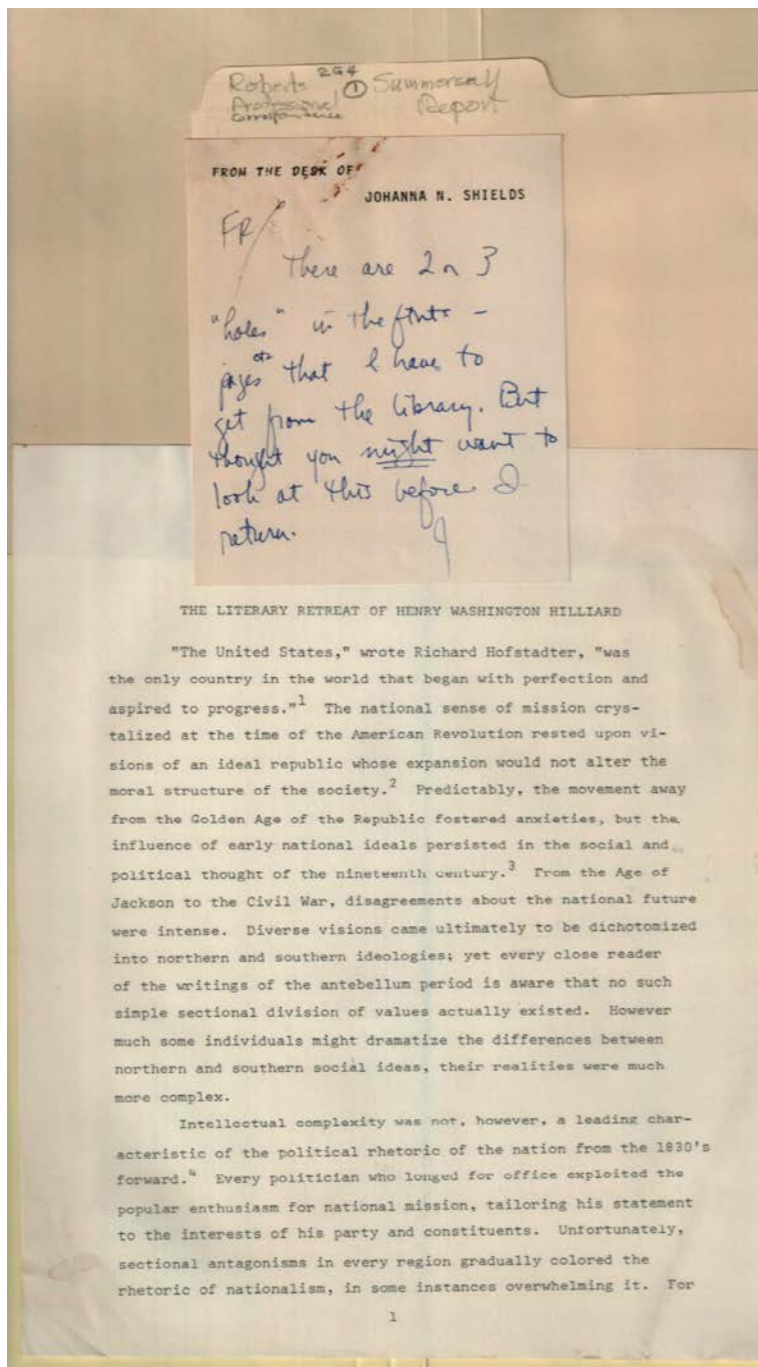 Roberts 2G4 ① Summersell
Professional Report
Correspondence
FROM THE DESK OF
JOHANNA N. SHIELDS
FR/
There are 2 or 3
"holes" in the ftnts -
pages etc that I have to
get from the library. But
thought you might want to
look at this before I
return.
J
THE LITERARY RETREAT OF HENRY WASHINGTON HILLIARD
"The United States," wrote Richard Hofstadter, "was
the only country in the world that began with perfection and
aspired to progress."1 The national sense of mission crys-
talized at the time of the American Revolution rested upon vi-
sions of an ideal republic whose expansion would not alter the
moral structure of the society.2 Predictably, the movement away
from the Golden Age of the Republic fostered anxieties, but the
influence of early national ideals persisted in the social and
political thought of the nineteenth century.3 From the Age of
Jackson to the Civil War, disagreements about the national future
were intense. Diverse visions came ultimately to be dichotomized
into northern and southern ideologies; yet every close reader
of the writings of the antebellum period is aware that no such
simple sectional division of values actually existed. However
much some individuals might dramatize the differences between
northern and southern social ideas, their realities were much
more complex.
Intellectual complexity was not, however, a leading char-
acteristic of the political rhetoric of the nation from the 1830's
forward.4 Every politician who longed for office exploited the
popular enthusiasm for national mission, tailoring his statement
to the interests of his party and constituents. Unfortunately,
sectional antagonisms in every region gradually colored the
rhetoric of nationalism, in some instances overwhelming it. For
1